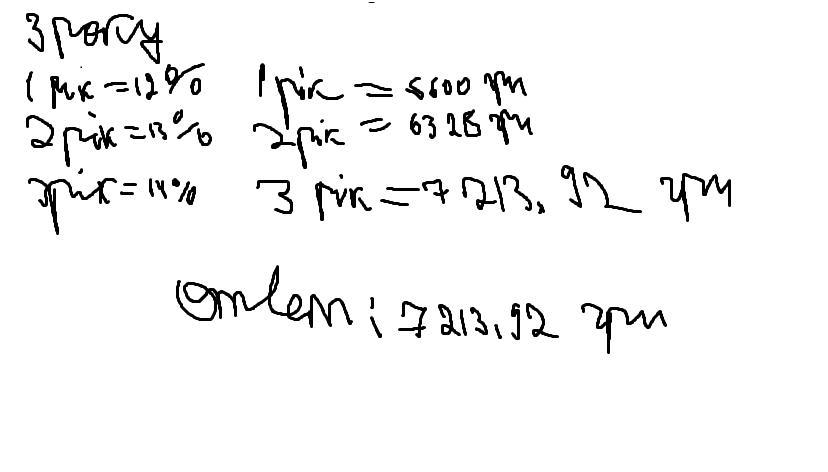 3 року
1 рік = 12% 1 рік = 5600 грн
2 рік = 13% 2 рік = 6328 грн
3 рік = 14% 3 рік = 7213,92 грн
Ответ: 7213,92 грн